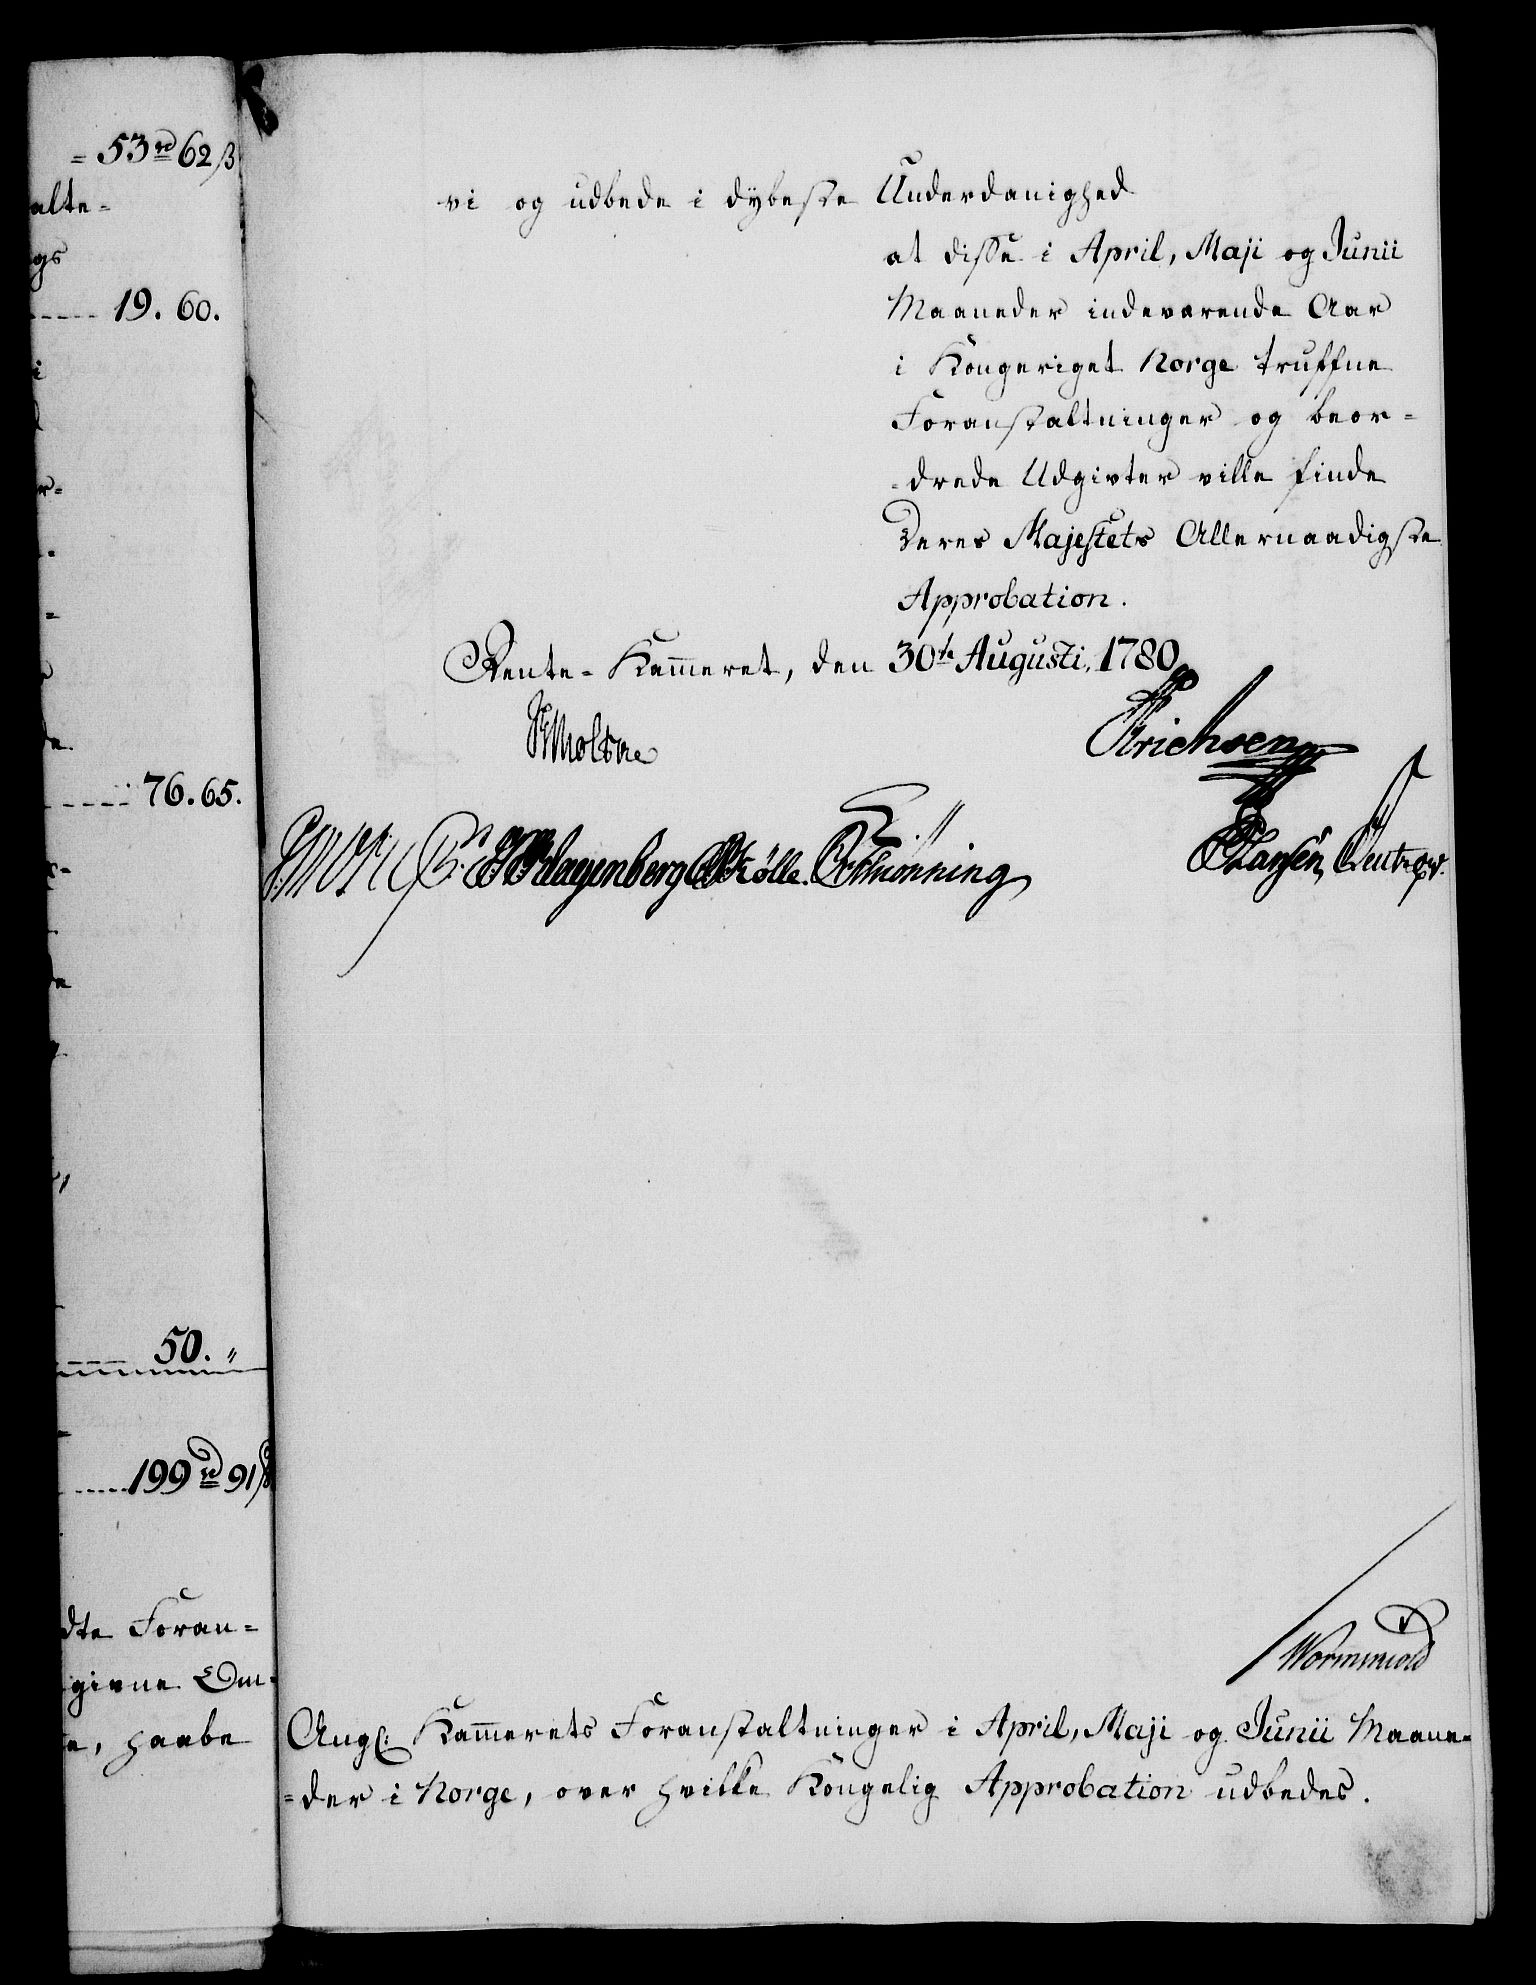 = 53 rd 62 ß
alte-
gs
19. 60.
i
76. 65.
50. "
199 rd 91 ß
dte Foran=
givne Om-
haabe
vi og udbede i dybeste Underdanighed
at disse i April, Maji og Junii
Maaneder indeværende Aar
i Kongeriget Norge trufne
Foranstaltninger og beor=
=drede Udgivter ville finde
Deres Majestets Allernaadigste
Approbation.
Rente-Kammeret, den 30te Augusti, 1780
Moltke
Erichsen
Klagenberg Kölle. Schiönning
Hansen,
Wormskiold
Angl: Kammerets Foranstaltninger i April, Maji og Junii Maane=
=der i Norge, over hvilke Kongelig Approbation udbedes.